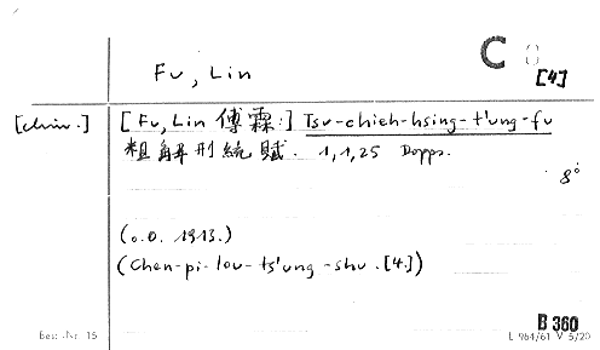 C
Fu, Lin
[4]
[chin.] [Fu, Lin 傅霖:] Tsu-chieh-hsing-t'ung-fu
粗解刑統賦. 1,1,25 Dopps.
8°
(o.O. 1913.)
(Chen-pi-lou-ts'ung-shu.[4.])
B 360
Best.-Nr. 15
L 964/61 V 5/20